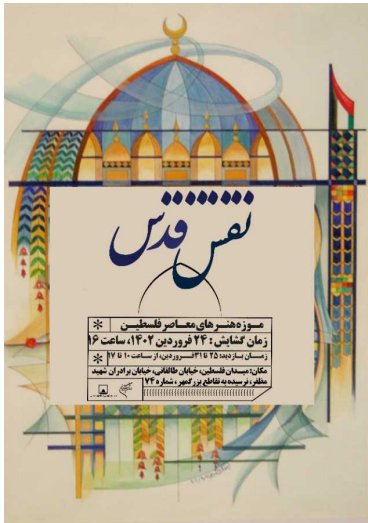 نقش قدس
موزه هنرهای معاصر فلسطین
زمان گشایش: ۲۴ فروردین ۱۴۰۲، ساعت ۱۶
زمـان بازدید: ۲۵ تا ۳۱ فـروردین، از ساعت ۱۰ تا ۱۷
مکان: میـدان فلسطین، خیابان طالقانی، خیابان برادران شهید
مظفر، نرسیده به تقاطع بزرگمهر، شماره ۷۴